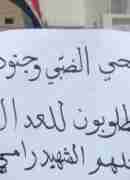 حي الضبي وجنود
طلوبون للعدال
لهم الشهيد رامي